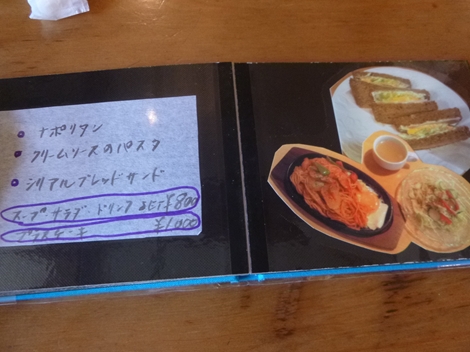 ナポリタン
クリームソースのパスタ
シリアルブレッドサンド
スープ サラダ・ドリンク ¥800
¥1000